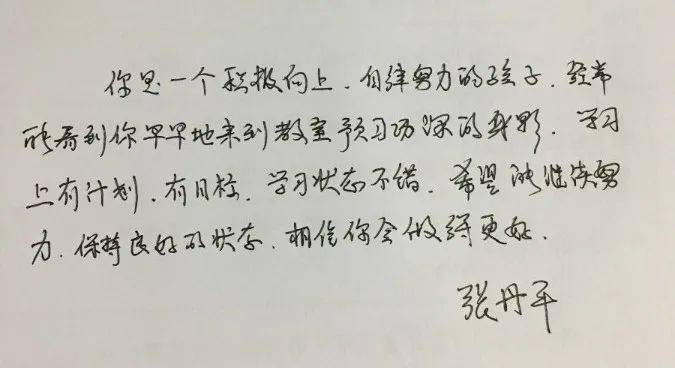 你是一个积极向上、自律努力的孩子，经常
能看到你早早地来到教室预习功课的身影。学习
上有计划、有目标，学习状态不错，希望能继续努
力，保持良好的状态，相信你会做得更好。
张丹平